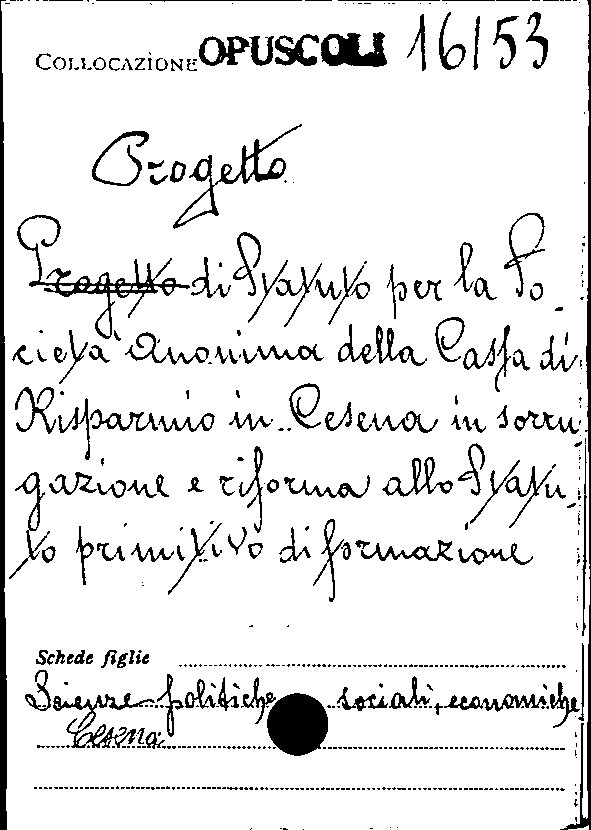 COLLOCAZIONE OPUSCOLI 16/53
Progetto
Progetto di Statuto per la So-
cietà Anonima della Cassa di
Risparmio in Cesena in sorru-
gazione e riforma allo Statu-
to primitivo di formazione
Schede figlie
Scienze politiche sociali, economiche
Cesena